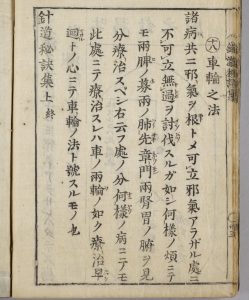 十八車輪之法
諸病共ニ邪氣ヲ根トメ可立邪氣アラザル處ニ
不可立無過ヲ討伐スルガ如シ何樣ノ煩ニテ
モ兩脾ノ募兩ノ肺先章門兩腎胃ノ腑ヲ見
分療治スベシ右云フ處ノ分何樣ノ病ニテモ
此處ニテ療治スレハ車ノ兩輪ノ如ク療治早
廻トノ心ニテ車輪ノ法ト號スルモノ也
針道秘訣集上終